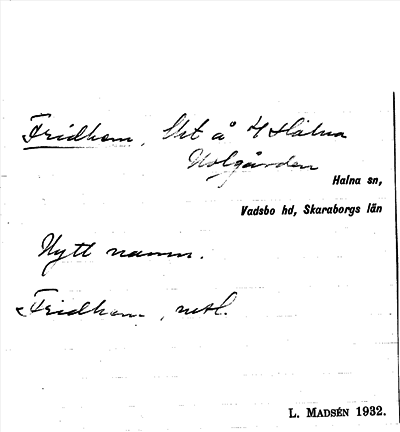 Fridhem, lht å 4 Halna
Holgården
Halna sn,
Vadsbo hd, Skaraborgs län
Nytt namn.
Fridhem, mtl.
L. MADSÉN 1932.